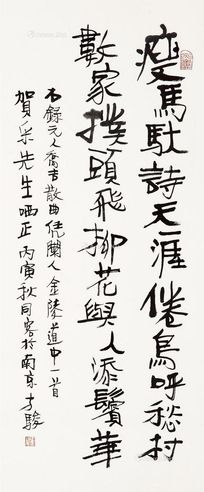 瘦馬馱詩天一涯倦鳥呼愁村
數家撲頭飛柳花與人添鬢華
右錄元人喬吉散曲凭闌人金陵道中一首
賀宋先生哂正丙寅秋同客於南京才駿